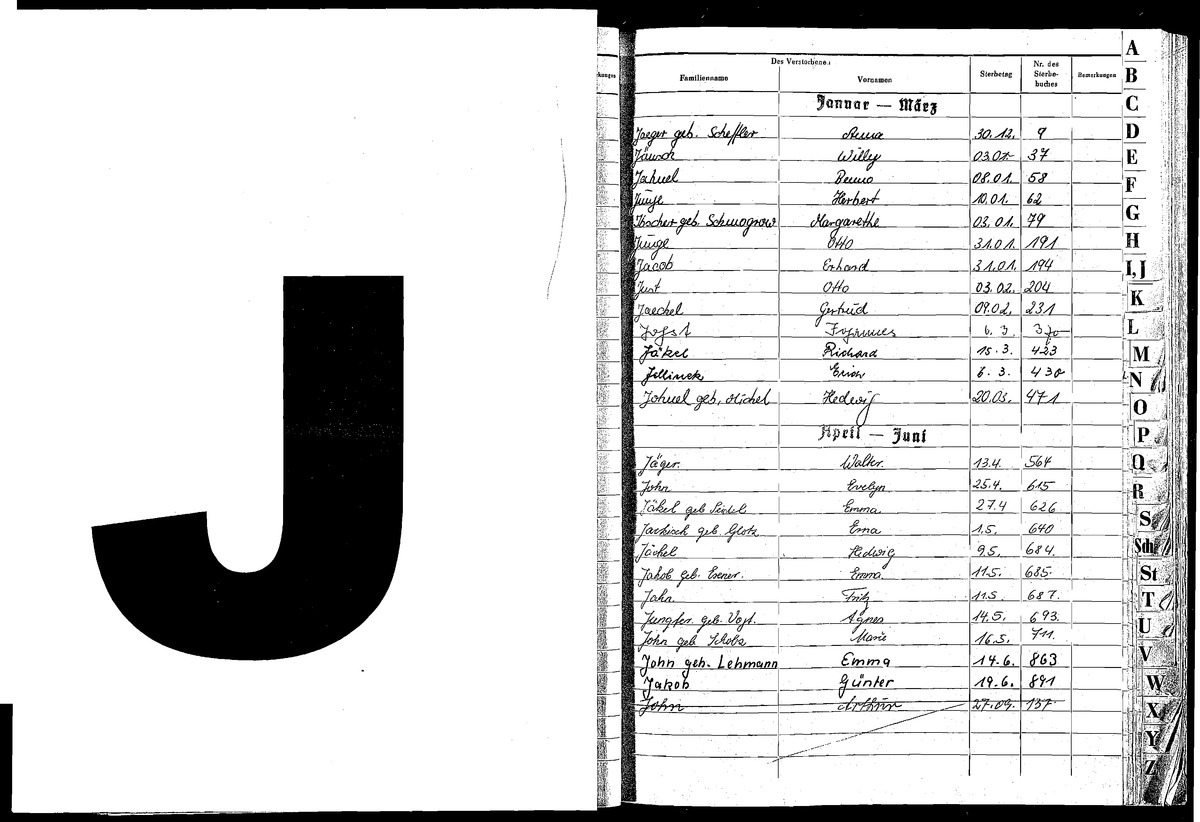 J
Des Verstorbenen
Familienname Vornamen Sterbetag Nr. des Sterbe-buches Bemerkungen
Januar — März
Jaeger geb. Scheffler Anna 30.12. 9
Jänsch Willy 03.01. 37
Jahnel Benno 08.01. 58
Junge Herbert 10.01. 62
geb. Schmogrow Margarethe 03.01. 79
Junge Otto 31.01. 191
Jacob Erhard 31.01. 194
Just Otto 03.02. 204
Jaeckel Gertrud 09.02. 231
Jopst 6. 3.
Jäkel Richard 15. 3. 423
Jellineck Erich 6. 3. 430
Johnel geb. Michel Hedwig 20.03. 471
April — Juni
Jäger. Walter. 13.4. 564
John Evelyn 25.4. 615
Jäkel geb Seidel Emma 27.4 626
geb. Glotz Erna 1.5. 640
Jäckel Hedwig 9.5. 684.
Jakob geb. Exner. Emma. 11.5. 685.
Jahn. Fritz 11.5 687.
Jungfer geb. Vogt. Agnes 14.5. 693.
John geb Scholz Marie 16.5. 711.
John geb. Lehmann Emma 14.6. 863
Jakob Günter 19.6. 891
John Arthur 27.09. 137
A
B
C
D
E
F
G
H
I, J
K
L
M
N
O
P
Q
R
S
Sch
St
T
U
V
W
X
Y
Z